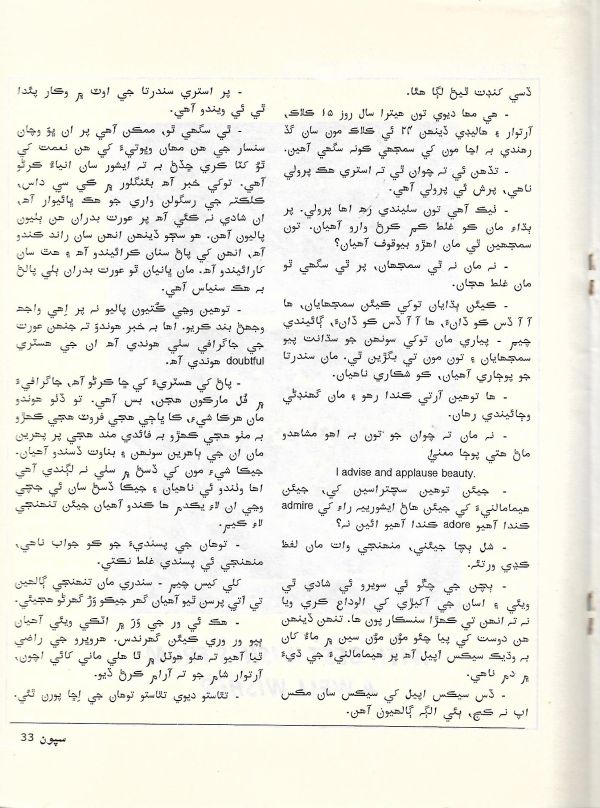 ڏسي کنڊت ٿيڻ لڳا هئا.
- هي مها ديوي تون هيترا سال روز ١٥ ڪلاڪ،
آرتوار ۽ هاليڊي ڏينهن ٢٤ ئي ڪلاڪ مون سان گڏ
رهندي به اڃا مون کي سمجهي ڪونه سگهي آهين.
- تڏهن ئي ته چوان ٿي ته استري هڪ پرولي
ناهي، پرش ئي پرولي آهي.
- ٺيڪ آهي تون سليندي رهه اها پرولي. پر
ٻڌاءِ مان ڪو غلط ڪم ڪرڻ وارو آهيان. تون
سمجهين ٿي مان اهڙو بيوقوف آهيان؟
- نه مان نه ٿي سمجهان، پر ٿي سگهي ٿو
مان غلط هجان.
- ڪيئن ٻڌايان توکي ڪيئن سمجهايان، ها
آ آ ڏس ڪو ڏانءُ، ها آ آ ڏس ڪو ڏانءُ، ڳائيندي
چيم - پياري مان توکي سونهن جو سڌانت پيو
سمجهايان ۽ تون مون تي بگڙين ٿي. مان سندرتا
جو پوڄاري آهيان، ڪو شڪاري ناهيان.
- ها توهين آرتي ڪندا رهو ۽ مان گهنڊڻي
وڄائيندي رهان.
- نه مان ته چوان جو تون به اهو مشاهدو
ماڻ هتي پوڄا معنيٰ
I advise and applause beauty.
- جيئن توهين سچتراسين کي، جيئن
هيمامالنيءَ کي جيئن هاڻ ايشوريه راءِ کي admire
ڪندا آهيو adore ڪندا آهيو ائين نه؟
- شل بچا جيئني، منهنجي وات مان لفظ
ڪڍي ورتئه.
- بچن جي چڱو ئي سويرو ئي شادي ٿي
ويئي ۽ اسان جي آکيڙي کي الوداع ڪري ويا
نه ته انهن تي ڪهڙا سنسڪار پون ها. تنهن ڏينهن
هن دوست کي پيا چئو مون مون سين ۾ ماءُ کان
به وڌيڪ سيڪس اپيل آهه پر هيمامالنيءَ جي ڌيءَ
۾ دم ناهي.
- ڏس سيڪس اپيل کي سيڪس سان مڪس
اپ نه ڪج، ٻئي الڳه ڳالهيون آهن.
- پر استري سندرتا جي اوٽ ۾ وڪار پئدا
ٿي ئي ويندو آهي.
- ٿي سگهي ٿو، ممڪن آهي پر ان ڀؤ وچان
سنسار جي هن مهان وڀوتيءَ کي هن نعمت کي
ٿڙ ڪٿا ڪري ڇڏڻ به ته ايشور سان انياءُ ڪرڻو
آهي. توکي خبر آهه بئنگلور ۾ ڪي سي داس،
ڪلڪته جي رسگولن واري جو هڪ ڀائيوار آهه،
ان شادي نه ڪئي آهه پر عورت بدران هن ٻليون
پاليون آهن. هو سڄو ڏينهن انهن سان راند ڪندو
آهه، انهن کي پاڻ سنان ڪرائيندو آهه ۽ هٿ سان
کارائيندو آهه. مان ڀانيان ٿو عورت بدران ٻلي پالڻ
به هڪ سنياس آهي.
- توهين وڃي ڪُتيون پاليو نه پر اِهي واجهه
وجهڻ بند ڪريو. اها به خبر هوندوَ ته جنهن عورت
جي جاگرافي سٺي هوندي آهه ان جي هسٽري
doubtful هوندي آهه.
- پاڻ کي هسٽريءَ کي ڇا ڪرڻو آهه، جاگرافيءَ
۾ فُل مارڪون هجن، بس آهي. تو ڏٺو هوندو
مان هرڪا شيءِ، ڪا ڀاڄي هجي فروٽ هجي کهڙو
به مٺو هجي کهڙو به فائدي مند هجي پر پهرين
مان ان جي ٻاهرين سونهن ۽ بناوت ڏسندو آهيان.
جيڪا شيءِ مون کي ڏسڻ ۾ سٺي نه لڳندي آهي
اها وٺندو ئي ناهيان ۽ جيڪا ڏسڻ سان ئي جچي
وڃي ان لاءِ يڪدم ها ڪندو آهيان جيئن تنهنجي
لاءِ ڪيم.
- توهان جي پسنديءَ جو ڪو جواب ناهي،
منهنجي ئي پسندي غلط نڪتي.
کلي کيس چيم - سندري مان تنهنجي ڳالهين
تي آتي پرسن ٿيو آهيان گهر جيڪو وَرَ گهرڻو هجيئي.
- هڪ ئي ور جي وَرَ ۾ اٽڪي ويئي آهيان
ٻيو ور وري ڪيئن گهرندس. هروڀرو جي راضي
ٿيا آهيو ته هلو هوٽل ۾ ٿا هلي ماني کائي اچون،
آرتوار شام جو ته آرام ڪرڻ ڏيو.
- تٿاستو ديوي تٿاستو توهان جي اِڇا پورن ٿئي.
سپون 33